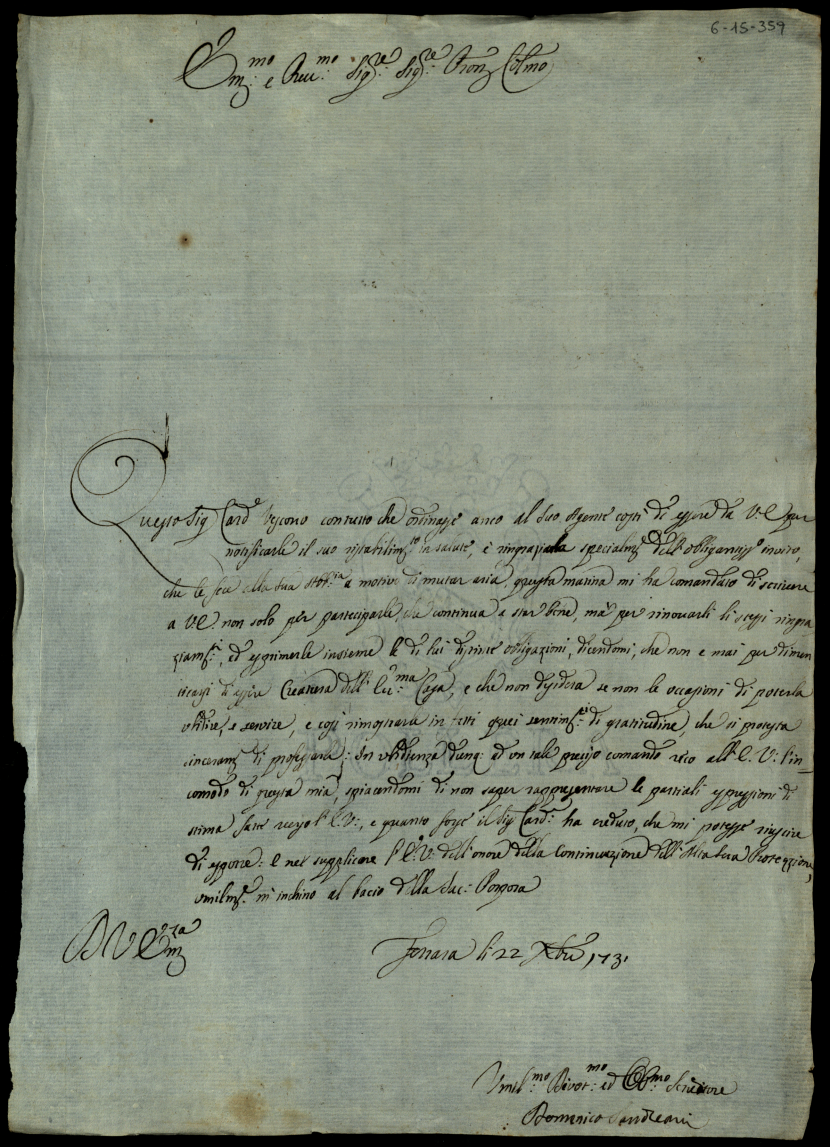 6-15-359
Em:mo e Rev:mo Sig:re Sig:re Pron Col:mo
Questo Sig Card.e Vescovo contutto che ordinasse anco al suo Agente costì di essere da V: E per
notificarle il suo ristabilim:to in salute, e ringraziarla specialm:e dell' obligantiss:o invito,
che le fece alla sua a motivo di mutar aria, questa matina mi ha comandato di scrivere
a VE non solo per parteciparle, che continua a star bene, mà per rinovarli li stessi ringra
ziam:ti, ed esprimerle insieme le di lui distinte obligazioni, dicendomi, che non e mai per dimen
ticarsi di essere Creatura dell' Ecc:ma Casa, e che non desidera se non le occasioni di poterla
ubidire, e servire, e così rimostrarle in fatti quei sentim:ti di gratitudine, che si protesta
sinceram:e di professarle: In ubidienza dunq: ad un tale preciso comando reco all' E. V: l'in=
comodo di questa mia, spiacendomi di non saper rappresentare le partiali espressioni di
stima fatte verso l' E. V:, e quanto forse il Sig Card:e ha creduto, che mi potesse riuscire
di esporre: E nel supplicare l' E: V: dell' onore della continuazione dell' Alta Sua Protezzione,
umilm:e m' inchino al bacio della Sac: Porpora
D V Em:za
Ferrara li 22 Xbre 1731
Umil:mo Divot:mo ed Obl:mo Servitore
Domenico